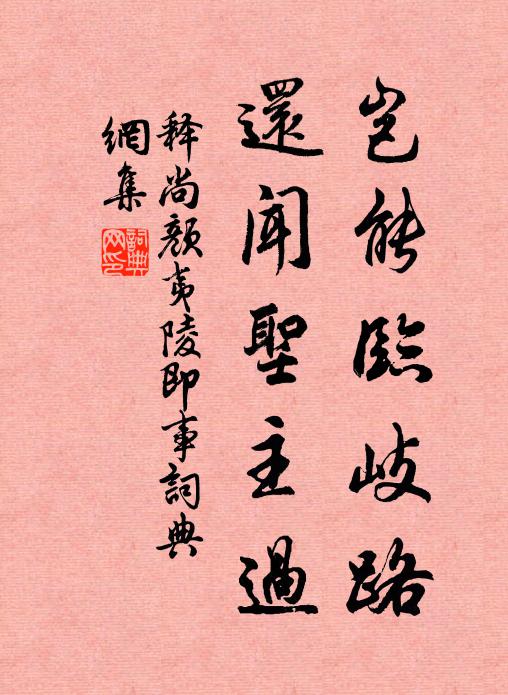 豈能臨岐路
還聞聖主過
释尚顔夷陵即事詞典
網集
詞典網印